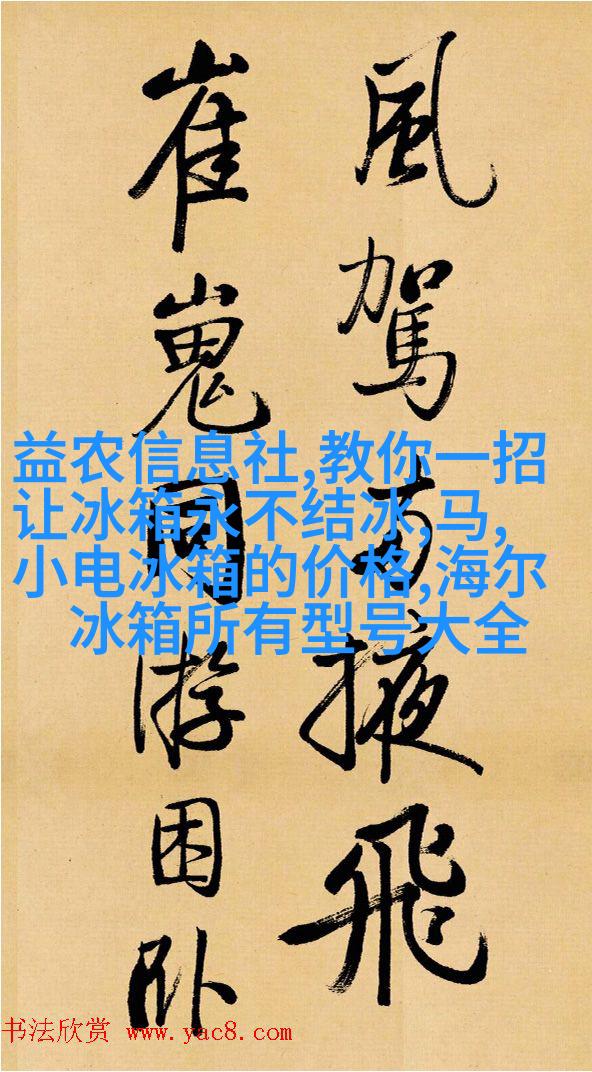 風駕掖飛
崔嵬同游困卧
益农信息社,教你一招
让冰箱永不结冰,马,
小电冰箱的价格,海尔
冰箱所有型号大全
书法欣赏 www.yac8.com